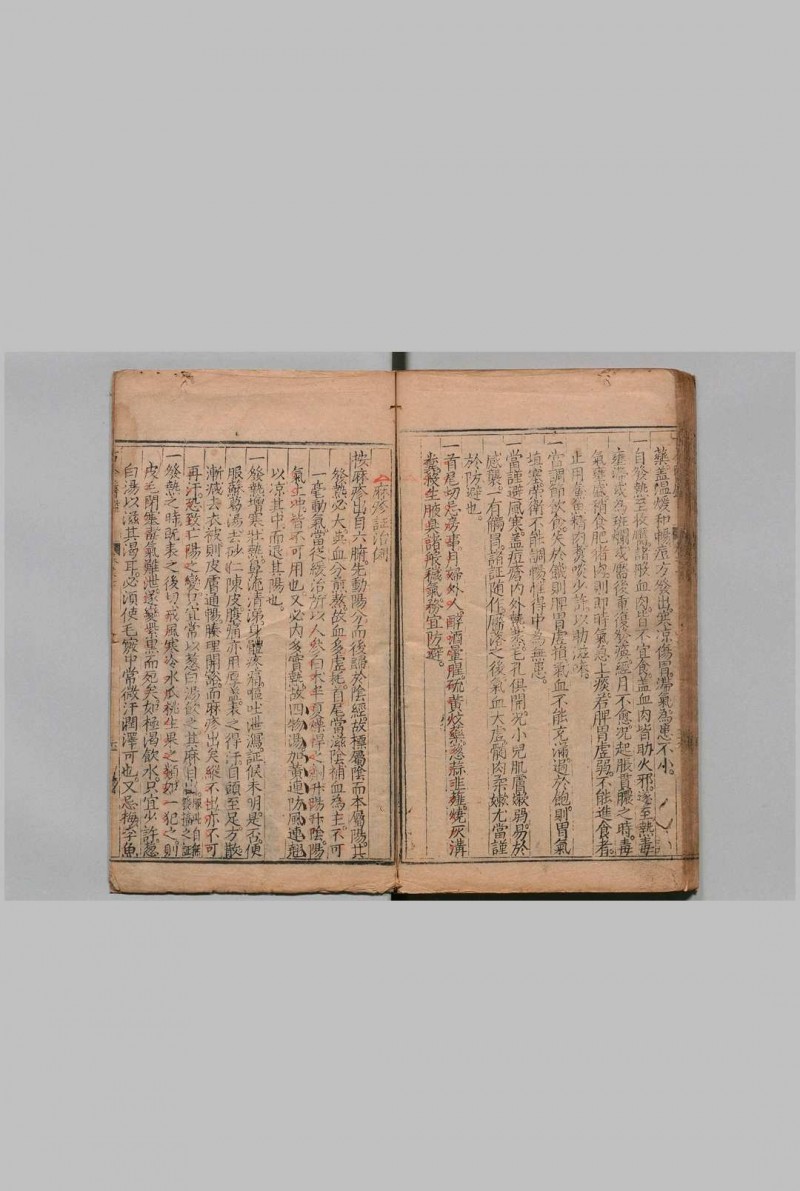 藥蓋溫煖和暢痘方發出寒凉傷胃滯氣為患不小
一自發熱至收靨諸般血肉皆不宜食蓋血肉皆助火邪遂至熱毒
壅滯或為斑爛或靨後重復發癰經月不愈況起脹貫膿之時毒
氣壅盛稍食肥猪鷄則即時氣急上痰若脾胃虛弱不能進食者
止用精肉煮啖少許以助滋味
一當調節飲食失於饑則脾胃虛損氣血不能充滿過於飽則胃氣
填塞榮衛不能調暢惟得中為無患
一當謹避風寒蓋痘瘡內外熱蒸毛孔俱開況小兒肌膚嫩弱易於
感襲一有觸冒諸証隨作靨落之後氣血大虛髓肉柔嫩尤當謹
於防避也
一首尾切忌房事月婦外人醉酒葷腥硫黃蚊藥葱蒜韭薤燒灰溝
糞發生腋臭諸般穢氣務宜防避
麻疹証治例
按麻疹出自六腑先動陽分而後歸於陰經故標屬陰而本屬陽其
發熱必大與血分煎熬故血多虛耗首尾當滋陰補血為主不可
一毫動氣當從緩治所以人參白朮半夏燥悍之劑升陽升陰陽
氣上冲皆不可用也又必內多實熱故四物湯加黃連防風連翹
以凉其中而退其陽也
一發熱增寒壯熱鼻流清涕身體疼痛嘔吐泄瀉証候未明是否便
服蘇葛湯去砂仁陳皮腹痛亦用厚蓋表之得汗自頭至足方散
漸減去衣被則皮膚通暢腠理開豁而麻疹出矣縱不出亦不可
再汗恐致亡陽之變只宜常以葱白湯飲之其麻自出
一發熱之時既表之後切戒風寒冷水瓜桃生果之類如一犯之則
皮毛閉塞毒氣難泄遂變紫黑而死矣如極渴飲水只宜少許葱
白湯以滋其渴耳必須使毛竅中常微汗潤澤可也又忌梅李魚